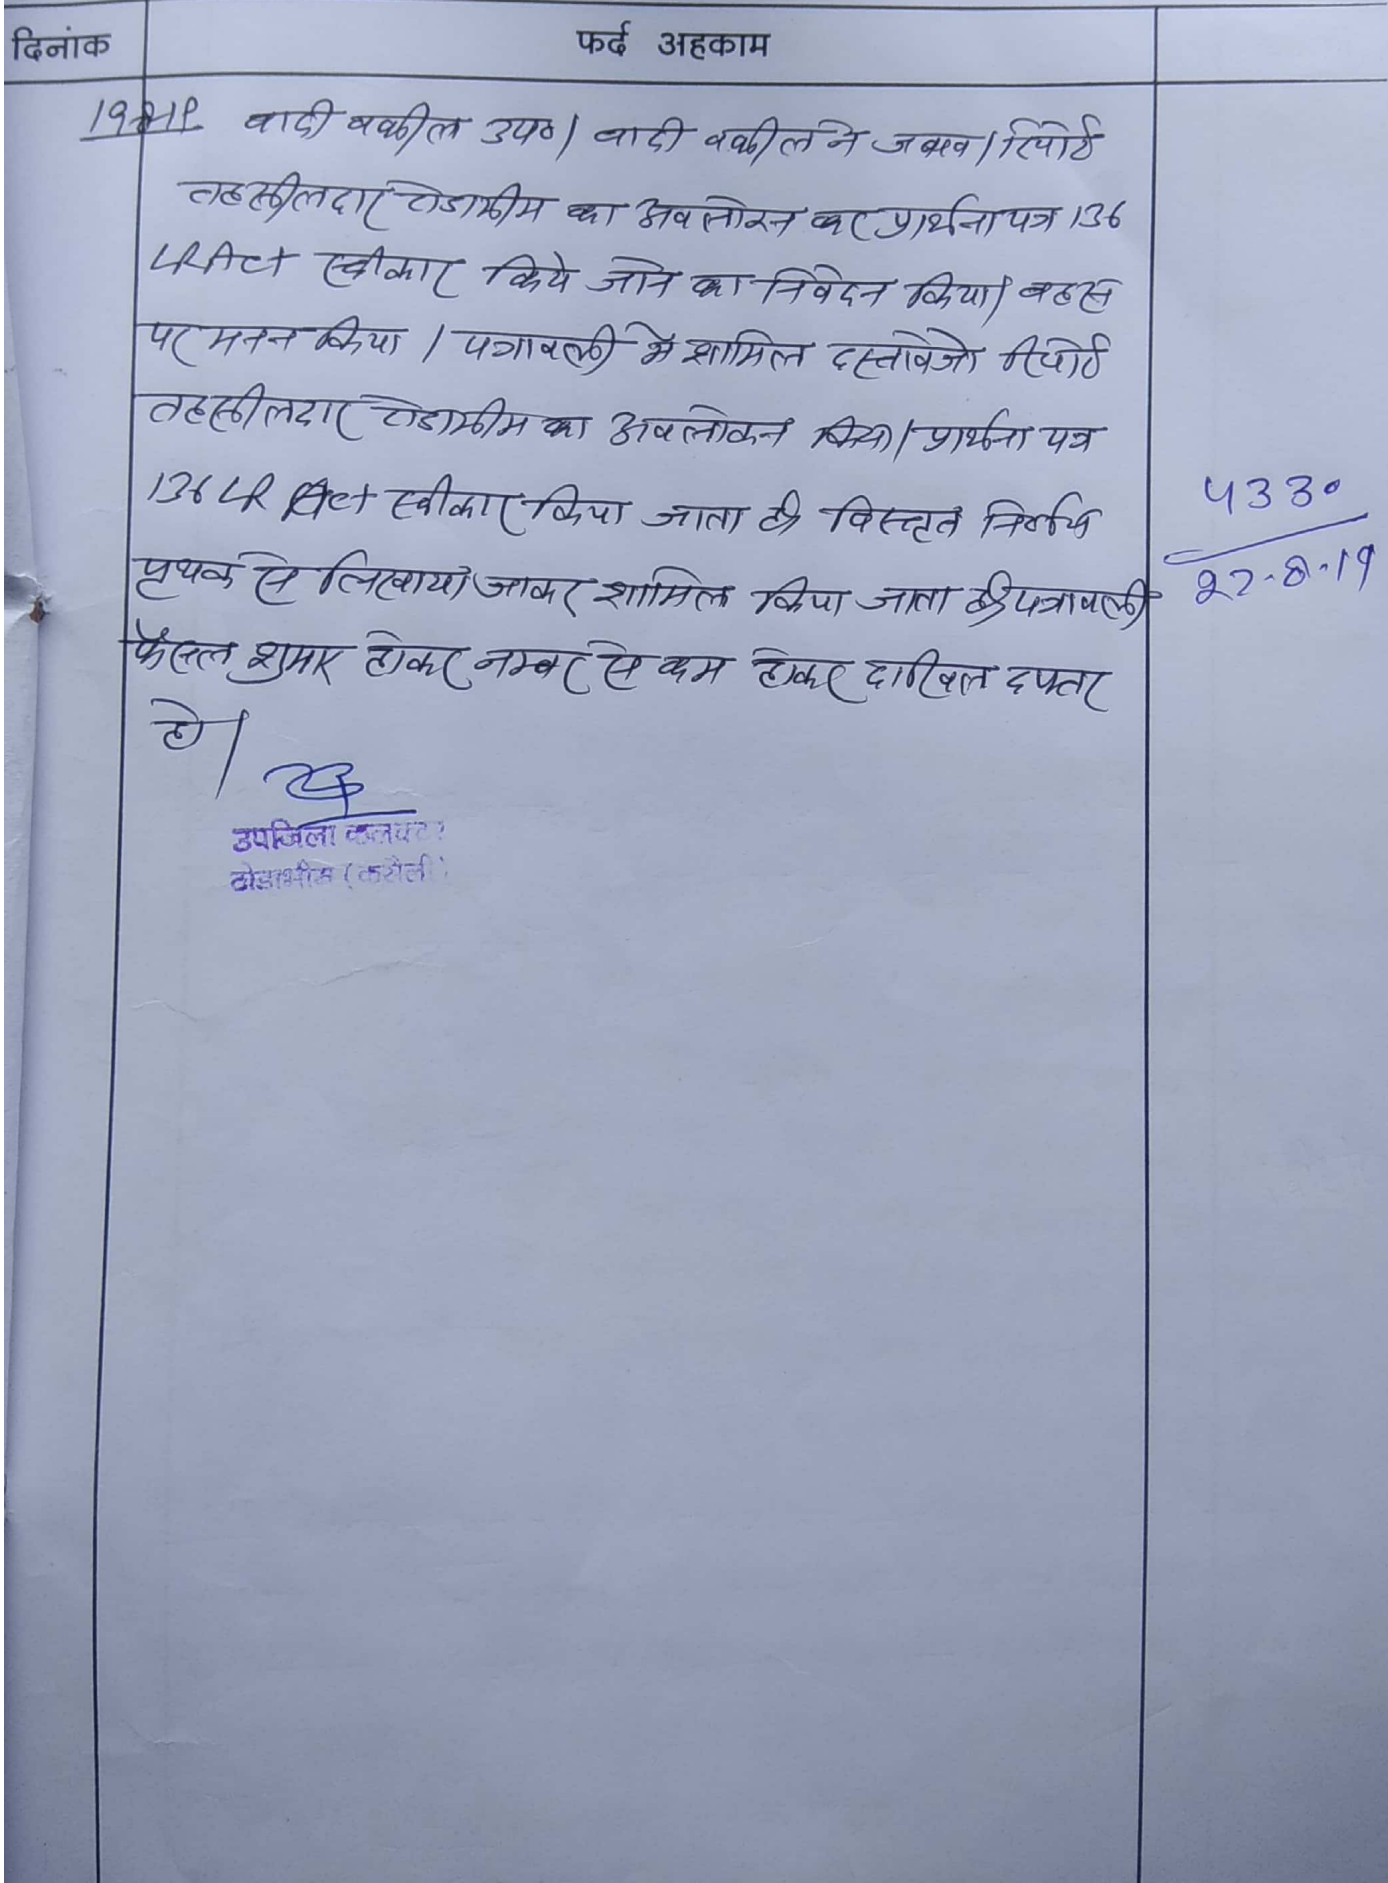 दिनांक फर्द अहकाम
वादी वकील उप०। वादी वकील ने जबाव। रिपोर्ट
तहसीलदार टोडाभीम का अवलोकन कर प्रार्थना पत्र 136
LR Act स्वीकार किये जाने का निवेदन किया। बहस
पर मनन किया। पत्रावली मे शामिल दस्तावेजो रिपोर्ट
तहसीलदार टोडाभीम का अवलोकन किया। प्रार्थना पत्र
136 LR Act स्वीकार किया जाता है। विस्तृत निर्णय
4330
पृथक से लिखाया जाकर शामिल किया जाता है। पत्रावली
27-8-19
फैसल शुमार होकर नम्बर से कम होकर दाखिल दफ्तर
हो।
उपजिला कलक्टर
टोडाभीम (करौली)